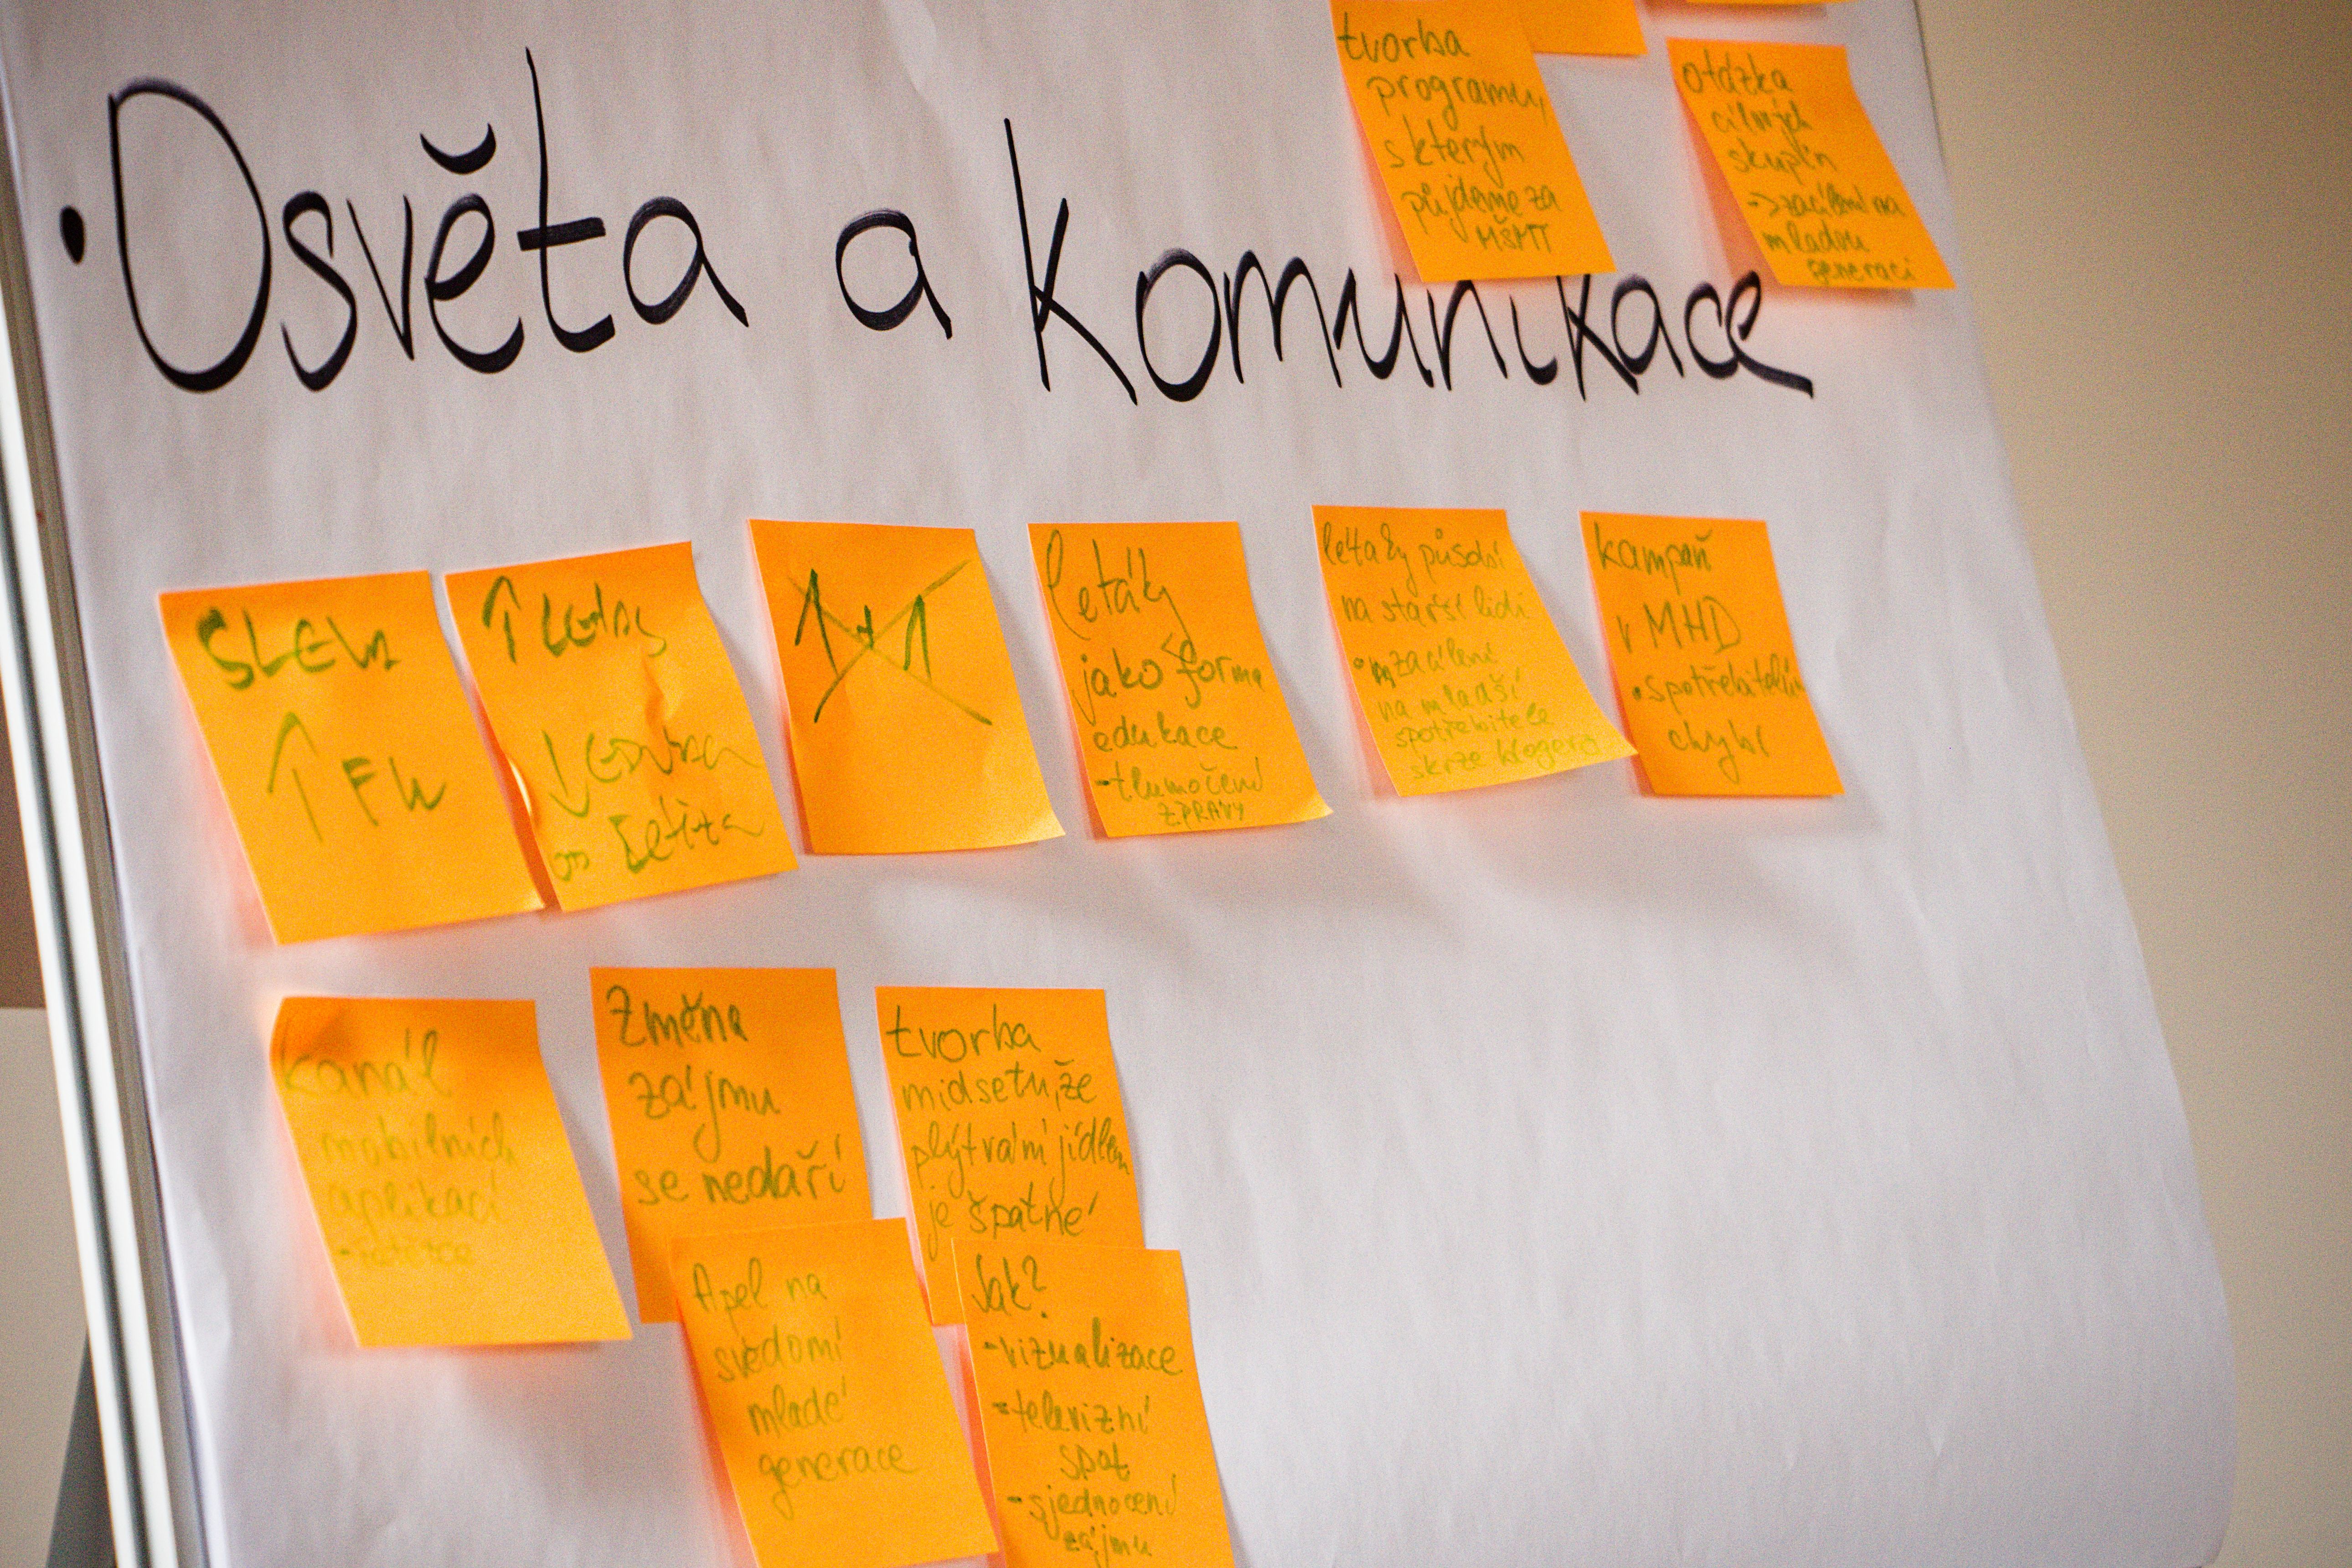 tvorba
programu,
s kterým
půjdeme za
MŠMT
otázka
cílových
skupin
->zacílení na
mladou
generaci
• Osvěta a komunikace
SLEW
↑ FW
↑
↓
1+1
letáky
jako forma
edukace
-tlumočení
ZPRÁVY
letáky působí
na starší lidi
• zacílené
na mladší
spotřebitele
skrze blogera
kampaň
v MHD
• spotřebitelům
chybí
kanál
mobilních
aplikací
Změna
zájmu
se nedaří
tvorba
midsetu, že
plýtvání jídlem
je špatné
Apel na
svědomí
mladé
generace
Jak?
-vizualizace
-televizní
spot
-sjednocení
zájmu